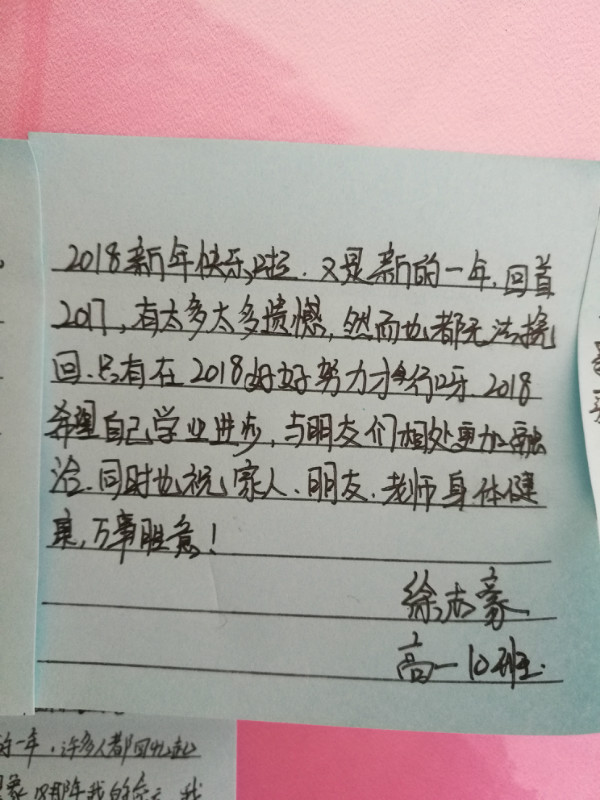 2018新年快乐啦.又是新的一年.回首
2017,有太多太多遗憾,然而也都无法挽
回.只有在2018好好努力才行呀.2018
希望自己学业进步,与朋友们相处更加融
洽.同时也祝家人、朋友、老师身体健
康,万事胜意!
徐志豪
高一10班.
的一年.许多人都回忆起